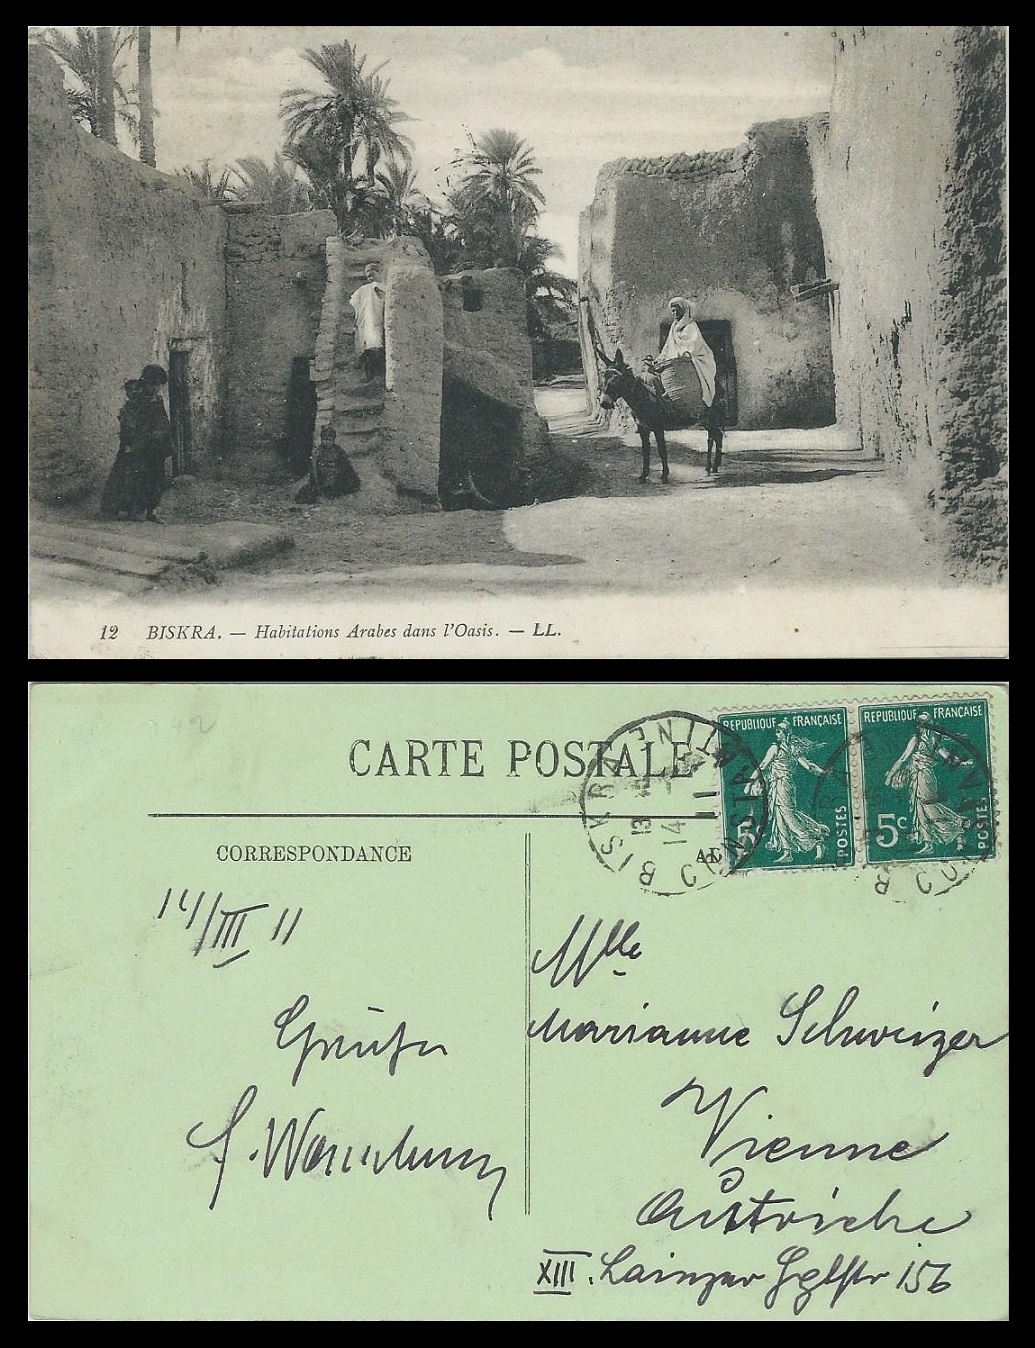 12 BISKRA. — Habitations Arabes dans l'Oasis. — LL.
CARTE POSTALE
CORRESPONDANCE
RÉPUBLIQUE FRANÇAISE
5c
POSTES
RÉPUBLIQUE FRANÇAISE
5c
POSTES
BISKRA
CONSTANTINE
13
14
11
14/III 11
Mlle
Marianne Schweizer
Vienne
Autriche
XIII. Lainzer 156